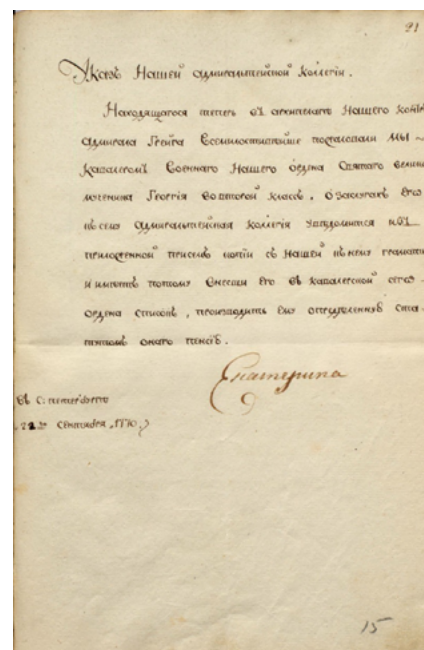 21
Указъ Нашей адмиралтейской Коллегіи.
Находящагося теперь въ архипелагѣ Нашего контръ
адмирала Грейга Всемилостивѣйше пожаловали МЫ
Кавалеромъ Военнаго Нашего ордена Святаго велико
мученика Георгія во второй классъ, о заслугахъ Его
къ сему адмиралтейская Коллегія увѣдомится изъ
приложенной присемъ копіи съ Нашей къ нему грамоты
и имѣетъ потому внесши его въ кавалерской сего
ордена списокъ, производить ему опредѣленную ста
тутомъ онаго пенсію.
Екатерина
Въ С: петербургѣ
22 го Сентября, 1770,
15